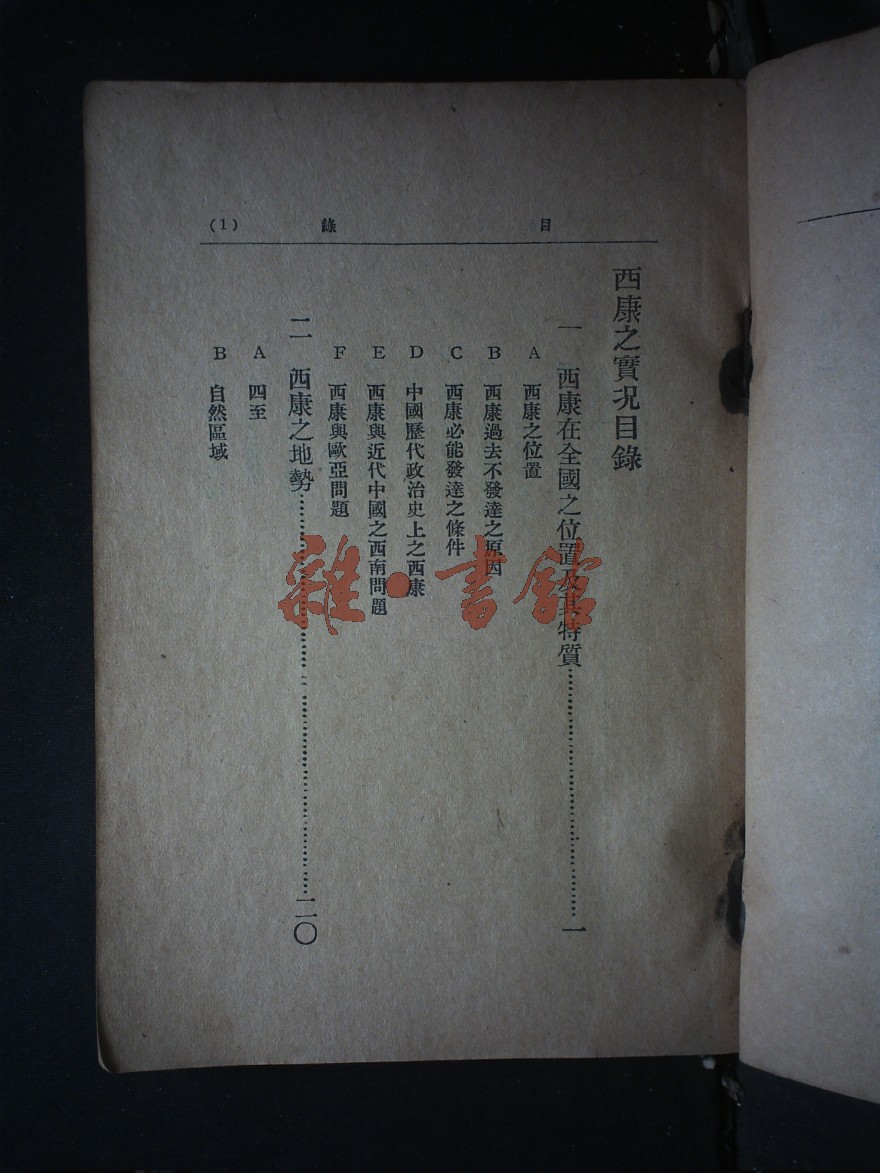 目錄 (1)
西康之實況目錄
一 西康在全國之位置及其特質……………………一
A 西康之位置
B 西康過去不發達之原因
C 西康必能發達之條件
D 中國歷代政治史上之西康
E 西康與近代中國之西南問題
F 西康與歐亞問題
二 西康之地勢……………………二〇
A 四至
B 自然區域
雜·書館